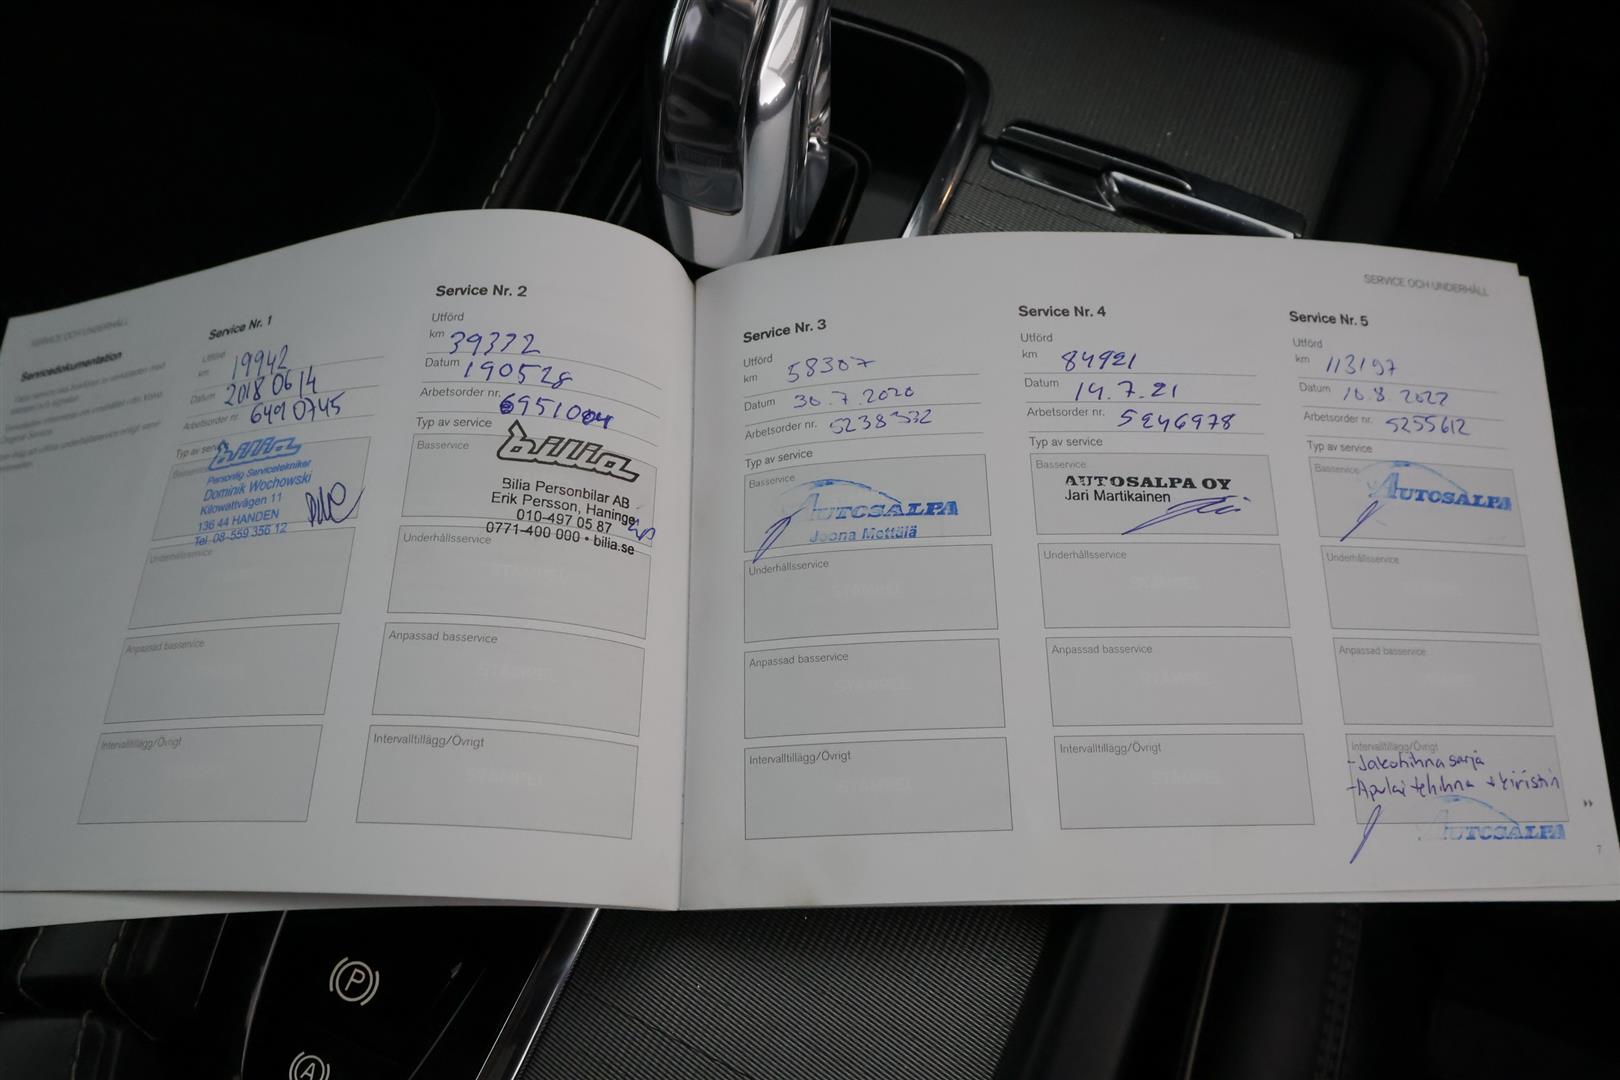 SERVICE OCH UNDERHÅLL
Servicedokumentation
Service Nr. 1
Utförd
km 19942
Datum 2018 06 14
Arbetsorder nr. 6491 0745
Typ av
bilia
Personlig Servicetekniker
Dominik Wochowski
Kilowattvägen 11
136 44 HANDEN
Tel 08-559 356 12
Underhållsservice
Anpassad basservice
Intervalltillägg/Övrigt
Service Nr. 2
Utförd
km 39372
Datum 190528
Arbetsorder nr. 6951004
Typ av service
Basservice
bilia
Bilia Personbilar AB
Erik Persson, Haninge
010-497 05 87
0771-400 000 • bilia.se
Underhållsservice
Anpassad basservice
STÄMPEL
Intervalltillägg/Övrigt
STÄMPEL
Service Nr. 3
Utförd
km 58307
Datum 30.7.2020
Arbetsorder nr. 5238532
Typ av service
Basservice
AUTOSALPA
Joona Mettälä
Underhållsservice
STÄMPEL
Anpassad basservice
STÄMPEL
Intervalltillägg/Övrigt
STÄMPEL
Service Nr. 4
Utförd
km 84921
Datum 14.7.21
Arbetsorder nr. 5246978
Typ av service
Basservice
AUTOSALPA OY
Jari Martikainen
Underhållsservice
STÄMPEL
Anpassad basservice
STÄMPEL
Intervalltillägg/Övrigt
STÄMPEL
SERVICE OCH UNDERHÅLL
Service Nr. 5
Utförd
km 113197
Datum 10.8.2022
Arbetsorder nr. 5255612
Typ av service
Basservice
AUTOSALPA
Underhållsservice
Anpassad basservice
Intervalltillägg/Övrigt
-Jakohihnasarja
-Apulaitehihna + kiristin
AUTOSALPA
7
P
A